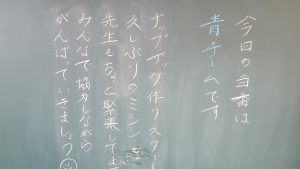 今日の当番は
青チームです
ナップサック作りスタート
久しぶりのミシン
先生もちょっと緊張してます
みんなで協力しながら
がんばっていきましょう